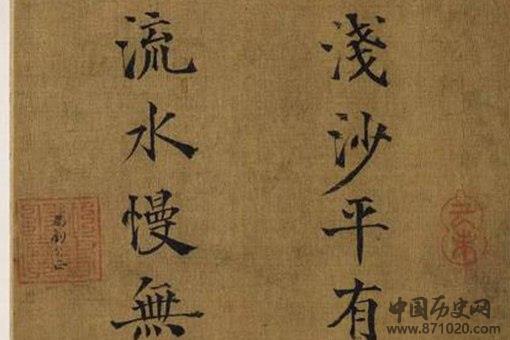 淺沙平有
流水慢無
中国历史网
www.871020.com